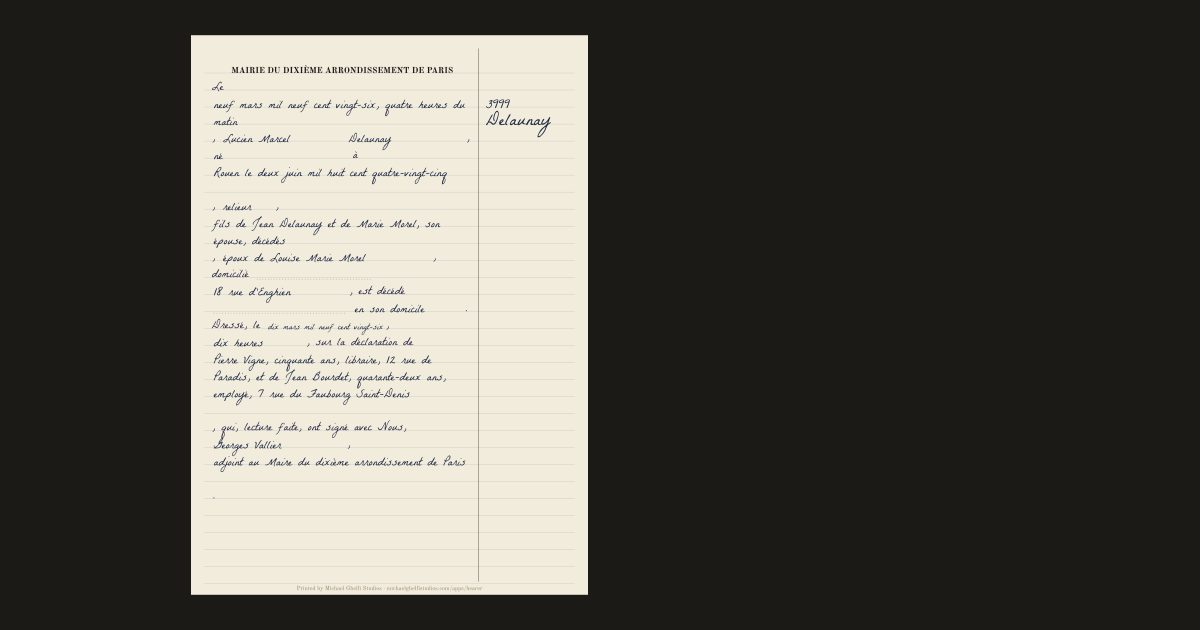 MAIRIE DU DIXIÈME ARRONDISSEMENT DE PARIS
Le
neuf mars mil neuf cent vingt-six, quatre heures du
matin
, Lucien Marcel Delaunay ,
né à
Rouen le deux juin mil huit cent quatre-vingt-cinq
, relieur ,
fils de Jean Delaunay et de Marie Morel, son
épouse, décédés
, époux de Louise Marie Morel ,
domicilié
18 rue d'Enghien , est décédé
en son domicile .
Dressé, le dix mars mil neuf cent vingt-six ,
dix heures , sur la déclaration de
Pierre Vigne, cinquante ans, libraire, 12 rue de
Paradis, et de Jean Bourdet, quarante-deux ans,
employé, 7 rue du Faubourg Saint-Denis
, qui, lecture faite, ont signé avec Nous,
Georges Vallier ,
adjoint au Maire du dixième arrondissement de Paris
.
3999
Delaunay
Printed by Michael Ghelfi Studios - michaelghelfistudios.com/apps/bearer